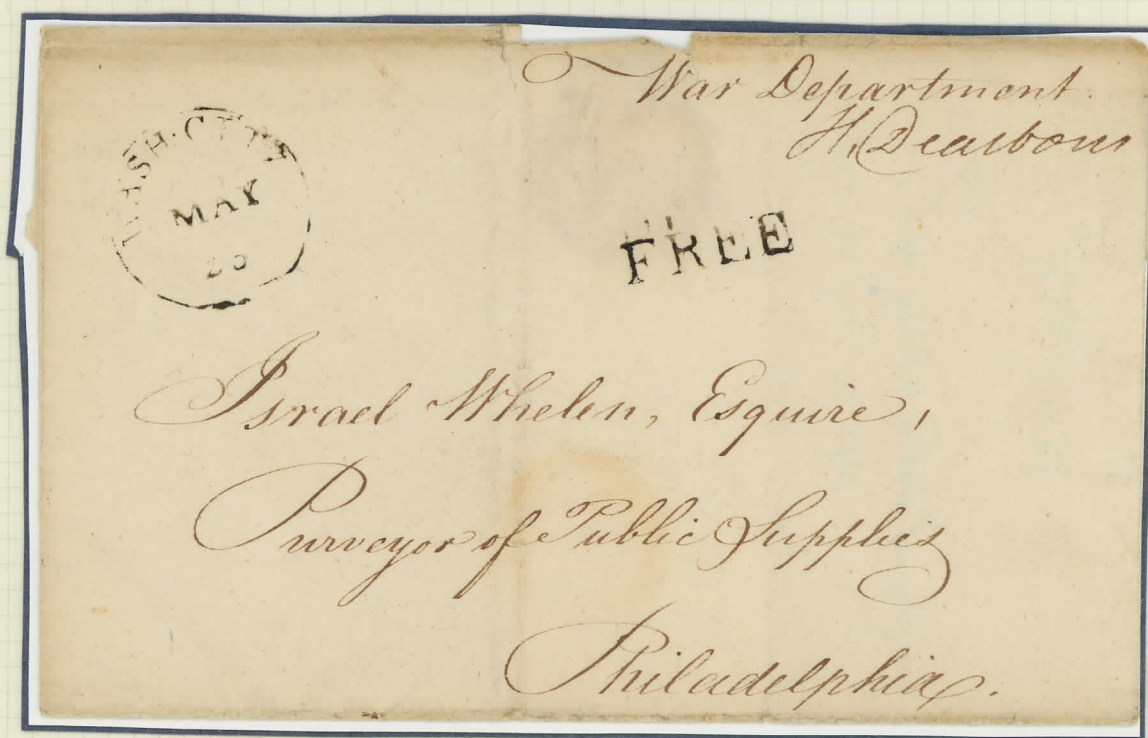 War Department.
H. Dearborn
WASH. CITY
MAY
FREE
Israel Whelen, Esquire,
Purveyor of Public Supplies
Philadelphia.